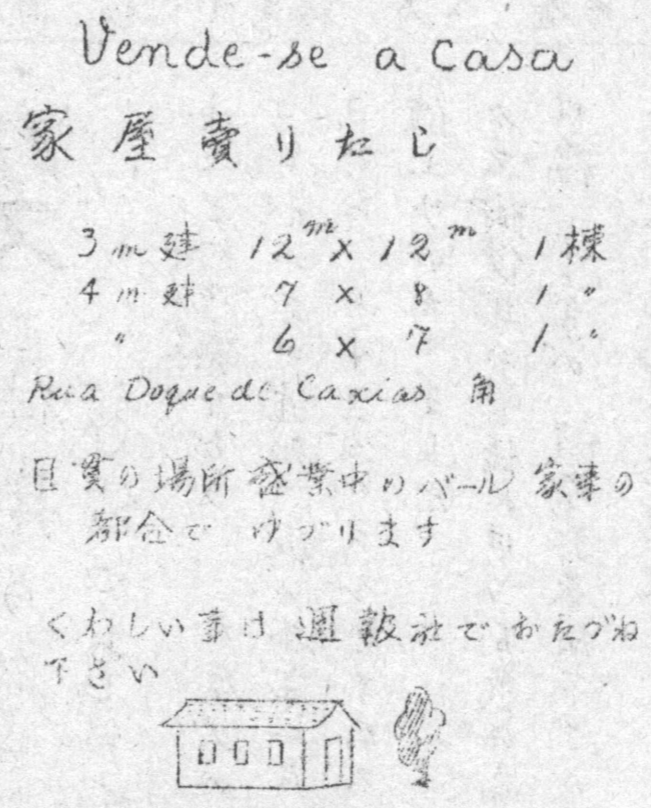 Vende-se a casa
家屋賣りたし
3m建 12m x 12m 1棟
4m建 7 x 8 1 〃
〃 6 x 7 1 〃
Rua Doque de Caxias 角
目貫の場所盛業中のバール 家事の
都合で ゆづります
くわしい事は 週報社でおたづね
下さい